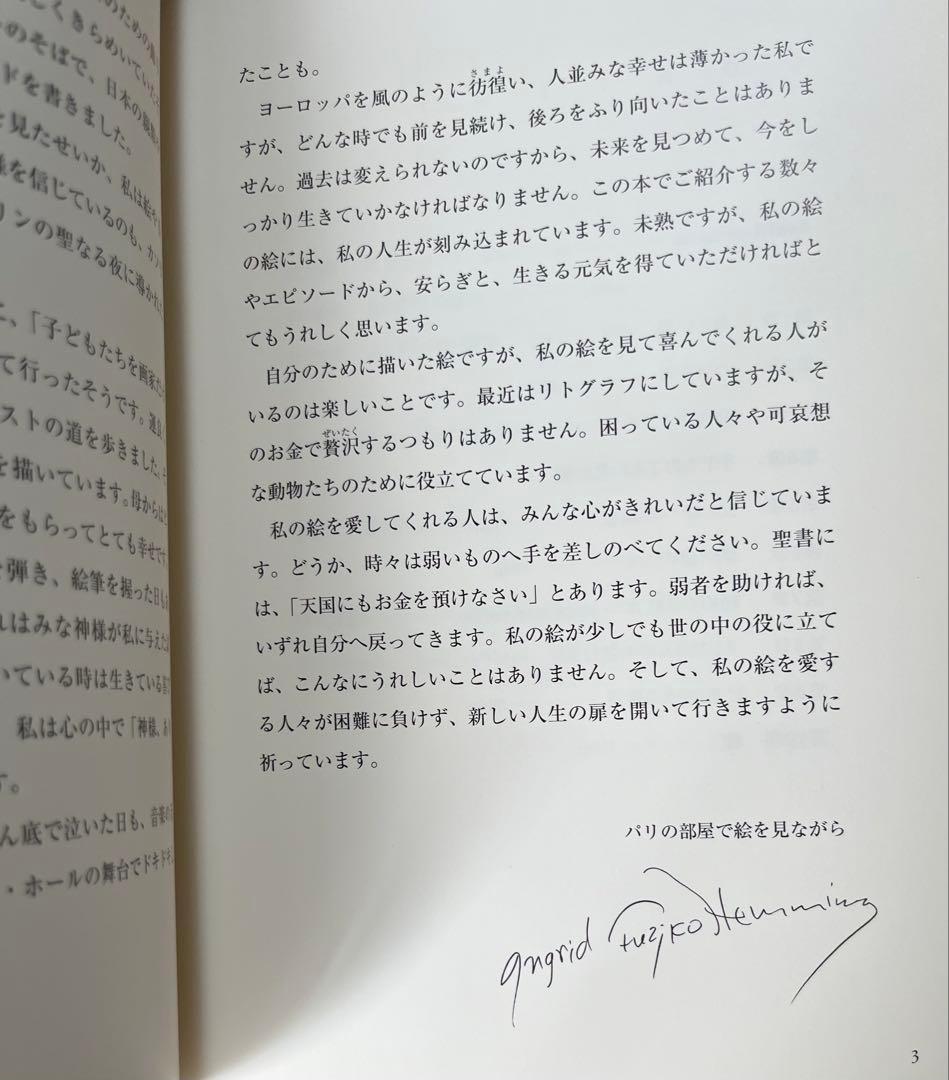 のための
しくきらめいていた
のそばで、日本の
ドを書きました。
見たせいか、私は絵や
を信じているのも、カソ
リンの聖なる夜に導かれ
、「子どもたちを画家に
て行ったそうです。運良
ストの道を歩きました。
を描いています。母からは
をもらってとても幸せです
弾き、絵筆を握った日も
れはみな神様が私に与えた
いている時は生きている喜
私は心の中で「神様、あ
す。
ん底で泣いた日も、音楽の
・ホールの舞台でドキドキ
たことも。
ヨーロッパを風のように彷徨い、人並みな幸せは薄かった私で
すが、どんな時でも前を見続け、後ろをふり向いたことはありま
せん。過去は変えられないのですから、未来を見つめて、今をし
っかり生きていかなければなりません。この本でご紹介する数々
の絵には、私の人生が刻み込まれています。未熟ですが、私の絵
やエピソードから、安らぎと、生きる元気を得ていただければと
てもうれしく思います。
自分のために描いた絵ですが、私の絵を見て喜んでくれる人が
いるのは楽しいことです。最近はリトグラフにしていますが、そ
のお金で贅沢するつもりはありません。困っている人々や可哀想
な動物たちのために役立てています。
私の絵を愛してくれる人は、みんな心がきれいだと信じていま
す。どうか、時々は弱いものへ手を差しのべてください。聖書に
は、「天国にもお金を預けなさい」とあります。弱者を助ければ、
いずれ自分へ戻ってきます。私の絵が少しでも世の中の役に立て
ば、こんなにうれしいことはありません。そして、私の絵を愛す
る人々が困難に負けず、新しい人生の扉を開いて行きますように
祈っています。
パリの部屋で絵を見ながら
Ingrid Fuzjko Hemming
3